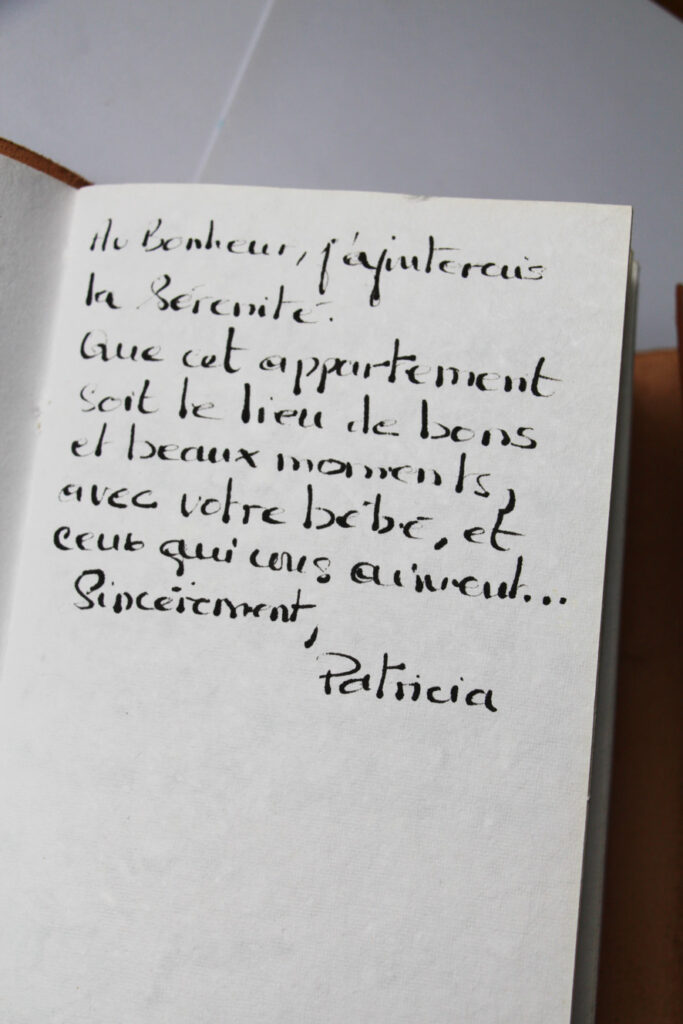 Au Bonheur, j'ajouterais
la Sérénité.
Que cet appartement
soit le lieu de bons
et beaux moments,
avec votre bébé, et
ceux qui vous aiment...
Sincèrement,
Patricia